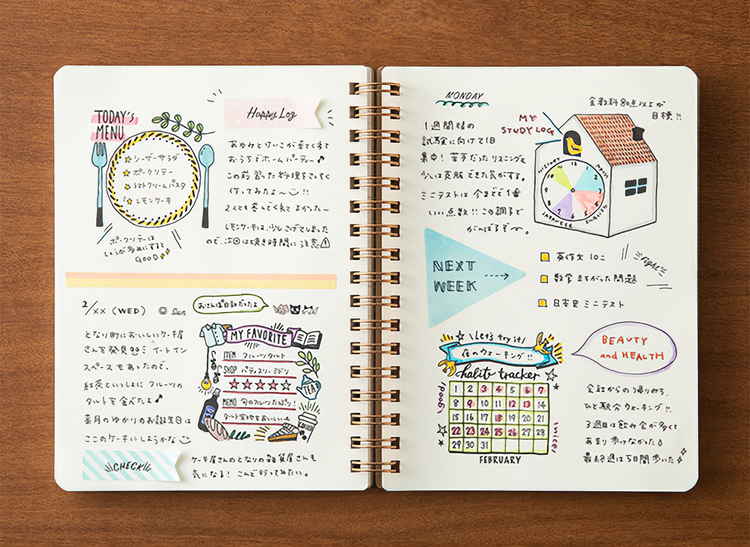 TODAY's
MENU
シーザーサラダ
ポークソテー
トマトクリームパスタ
レモンケーキ
ポークソテーは
しょうが多めにすると
GOOD
Happy Log
あゆみとけいこが妻と来て
おうちでホームパーティー♪
この前習った料理をさっそく
作ってみたよ〜!!
2人とも喜んでくれてよかった〜
レモンケーキは、少しこげてしまったので
次回は焼き時間に注意
2/××(WED) Sun
おさんぽ日和だったよ
となり町においしいケーキ屋
さんを発見 イートイン
スペースもあったので、
紅茶といっしょにフルーツの
タルトを食べたよ♪
来月のゆかりのお誕生日は
ここのケーキにしようかな
MY FAVORITE
ITEM フルーツタルト
SHOP パティスリーミドリ
MEMO 旬のフルーツたっぷり!
タルト生地もおいしい
TEA
CHECK!!
ケーキ屋さんのとなりの雑貨屋さんも
気になる! こんど行ってみたい。
MONDAY
1週間後の
試験に向けて1日
集中! 苦手だったリスニングも
少しは克服できた気がする。
ミニテストは今までで1番
いい点数!! この調子で
がんばるぞ〜
MY
STUDY LOG
全教科80点以上が
目標!!
HISTORY
MATH
JAPANESE
ENGLISH
NEXT
WEEK
英作文 10こ
数学 まちがった問題
日本史 ミニテスト
fight!
Let's try it!
夜のウォーキング!!
habit tracker
good!
nice!
1 2 3 4 5 6 7
8 9 10 11 12 13 14
15 16 17 18 19 20 21
22 23 24 25 26 27 28
29 30 31
FEBRUARY
BEAUTY
and HEALTH
会社からの帰り道、
ひと駅分ウォーキング!!
3週目は飲み会が多くて
あまり歩けなかった
最終週は5日間歩いた